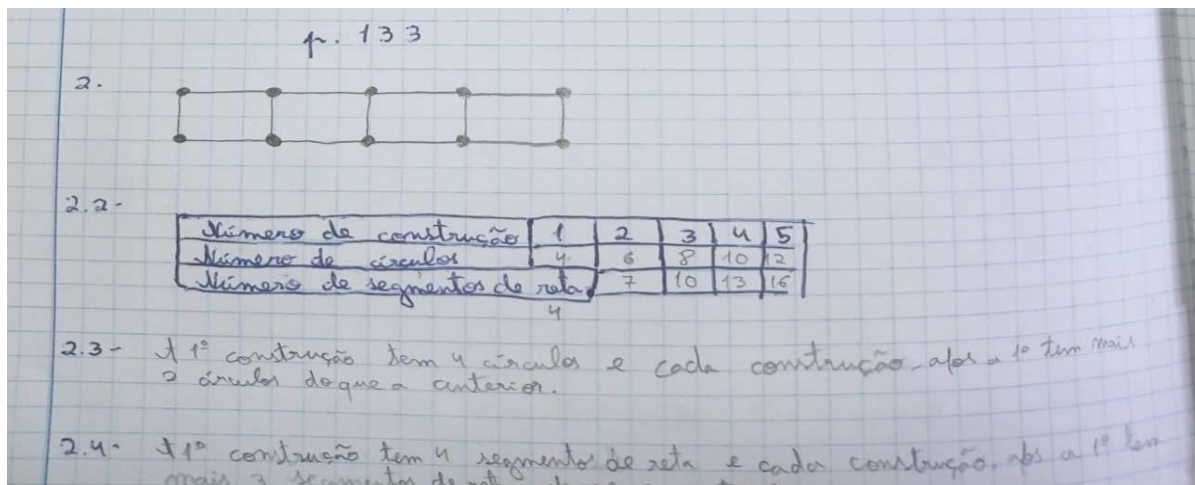 p. 133
2.
2.2-
Número de construção 1 2 3 4 5
Número de círculos 4 6 8 10 12
Número de segmentos de reta 7 10 13 16
4
2.3- A 1º construção tem 4 círculos e cada construção, após a 1º tem mais
2 círculos do que a anterior.
2.4- A 1º construção tem 4 segmentos de reta e cada construção, após a 1º tem
mais 3 segmentos de reta